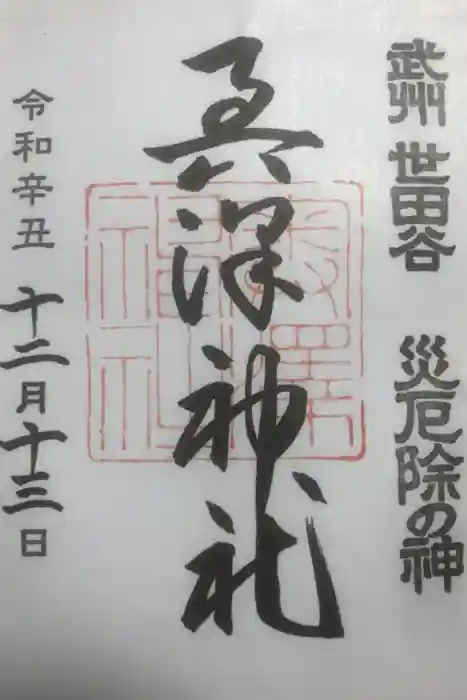 武州 世田谷 災厄除の神
奥澤神社
令和辛丑 十二月十三日